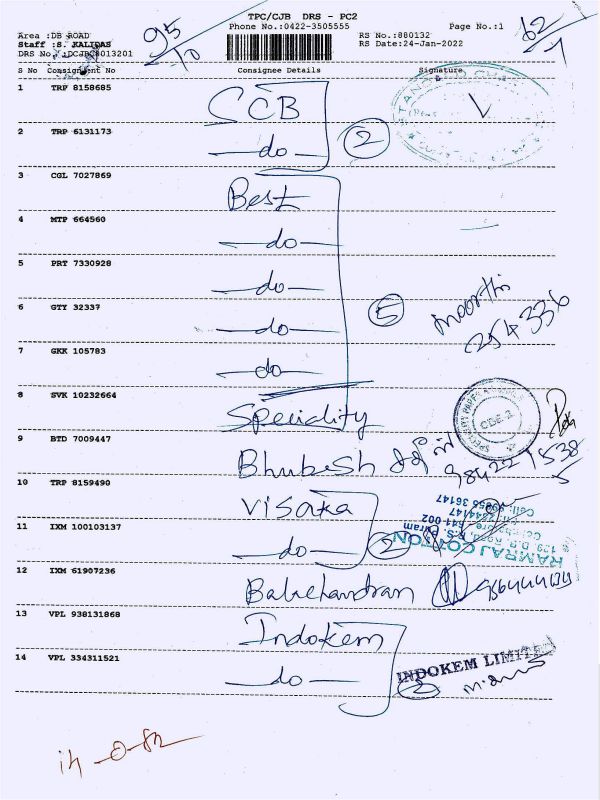 TPC/CJB DRS - PC2
Phone No.:0422-3505555
Page No.:1
95
10
62
1
Area :DB ROAD
RS No.:880132
Staff :S. KALIDAS
RS Date:24-Jan-2022
S No Consignment No Consignee Details Signature
1 TRP 8158685 SCB
2 TRP 6131173 —do— 2
3 CGL 7027869 Best
4 MTP 664560 —do—
5 PRT 7330928 —do—
6 GTY 32337 —do— 5
moorthi
254336
7 GKK 105783 —do—
8 SVK 10232664 Speciality
CBE-2
9 BTD 7009447 Bhubesh
10 TRP 8159490 Visaka
11 IXM 100103137 —do— 2
RAMRAJ COTTON
641 002
12 IXM 61907236 Balachandran
13 VPL 938131868 Indokem
14 VPL 334311521 —do— 2
INDOKEM LIMITED
14-0-82